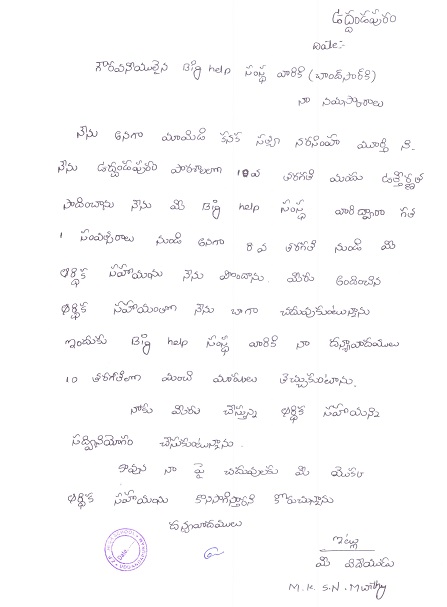 ఉద్దండపురం
Date:-
గౌరవనీయులైన Big help సంస్థ వారికి (చాంద్‌పాషాకి)
నా నమస్కారాలు
నేను అనగా మామిడి కనక సత్యా నరసింహ మూర్తి ని.
నేను ఉద్దండపురం పాఠశాలలో 10వ తరగతి చదువు ఉత్తీర్ణత
సాధించాను నేను మీ Big help సంస్థ వారిద్వారా గత
1 సంవత్సరాలు నుండి అనగా 8వ తరగతి నుండి మీ
ఆర్థిక సహాయము నేను పొందాను. మీరు అందించిన
ఆర్థిక సహాయంతో నేను బాగా చదువుకుంటున్నాను
ఇందుకు Big help సంస్థ వారికి నా ధన్యావాదములు
10 తరగతిలో మంచి మార్కులు తెచ్చుకుంటాను.
నాకు మీరు చేస్తున్న ఆర్థిక సహాయని
సద్వినియోగం చేసుకుంటున్నాను.
కావున నా పై చదువులకు మీ యొక్క
ఆర్థిక సహాయము కొనసాగిస్తారని కోరుచున్నాను
ధన్యవాదములు
ఇట్లు
మీ విదేయుడు
M.K.S.N.Murthy